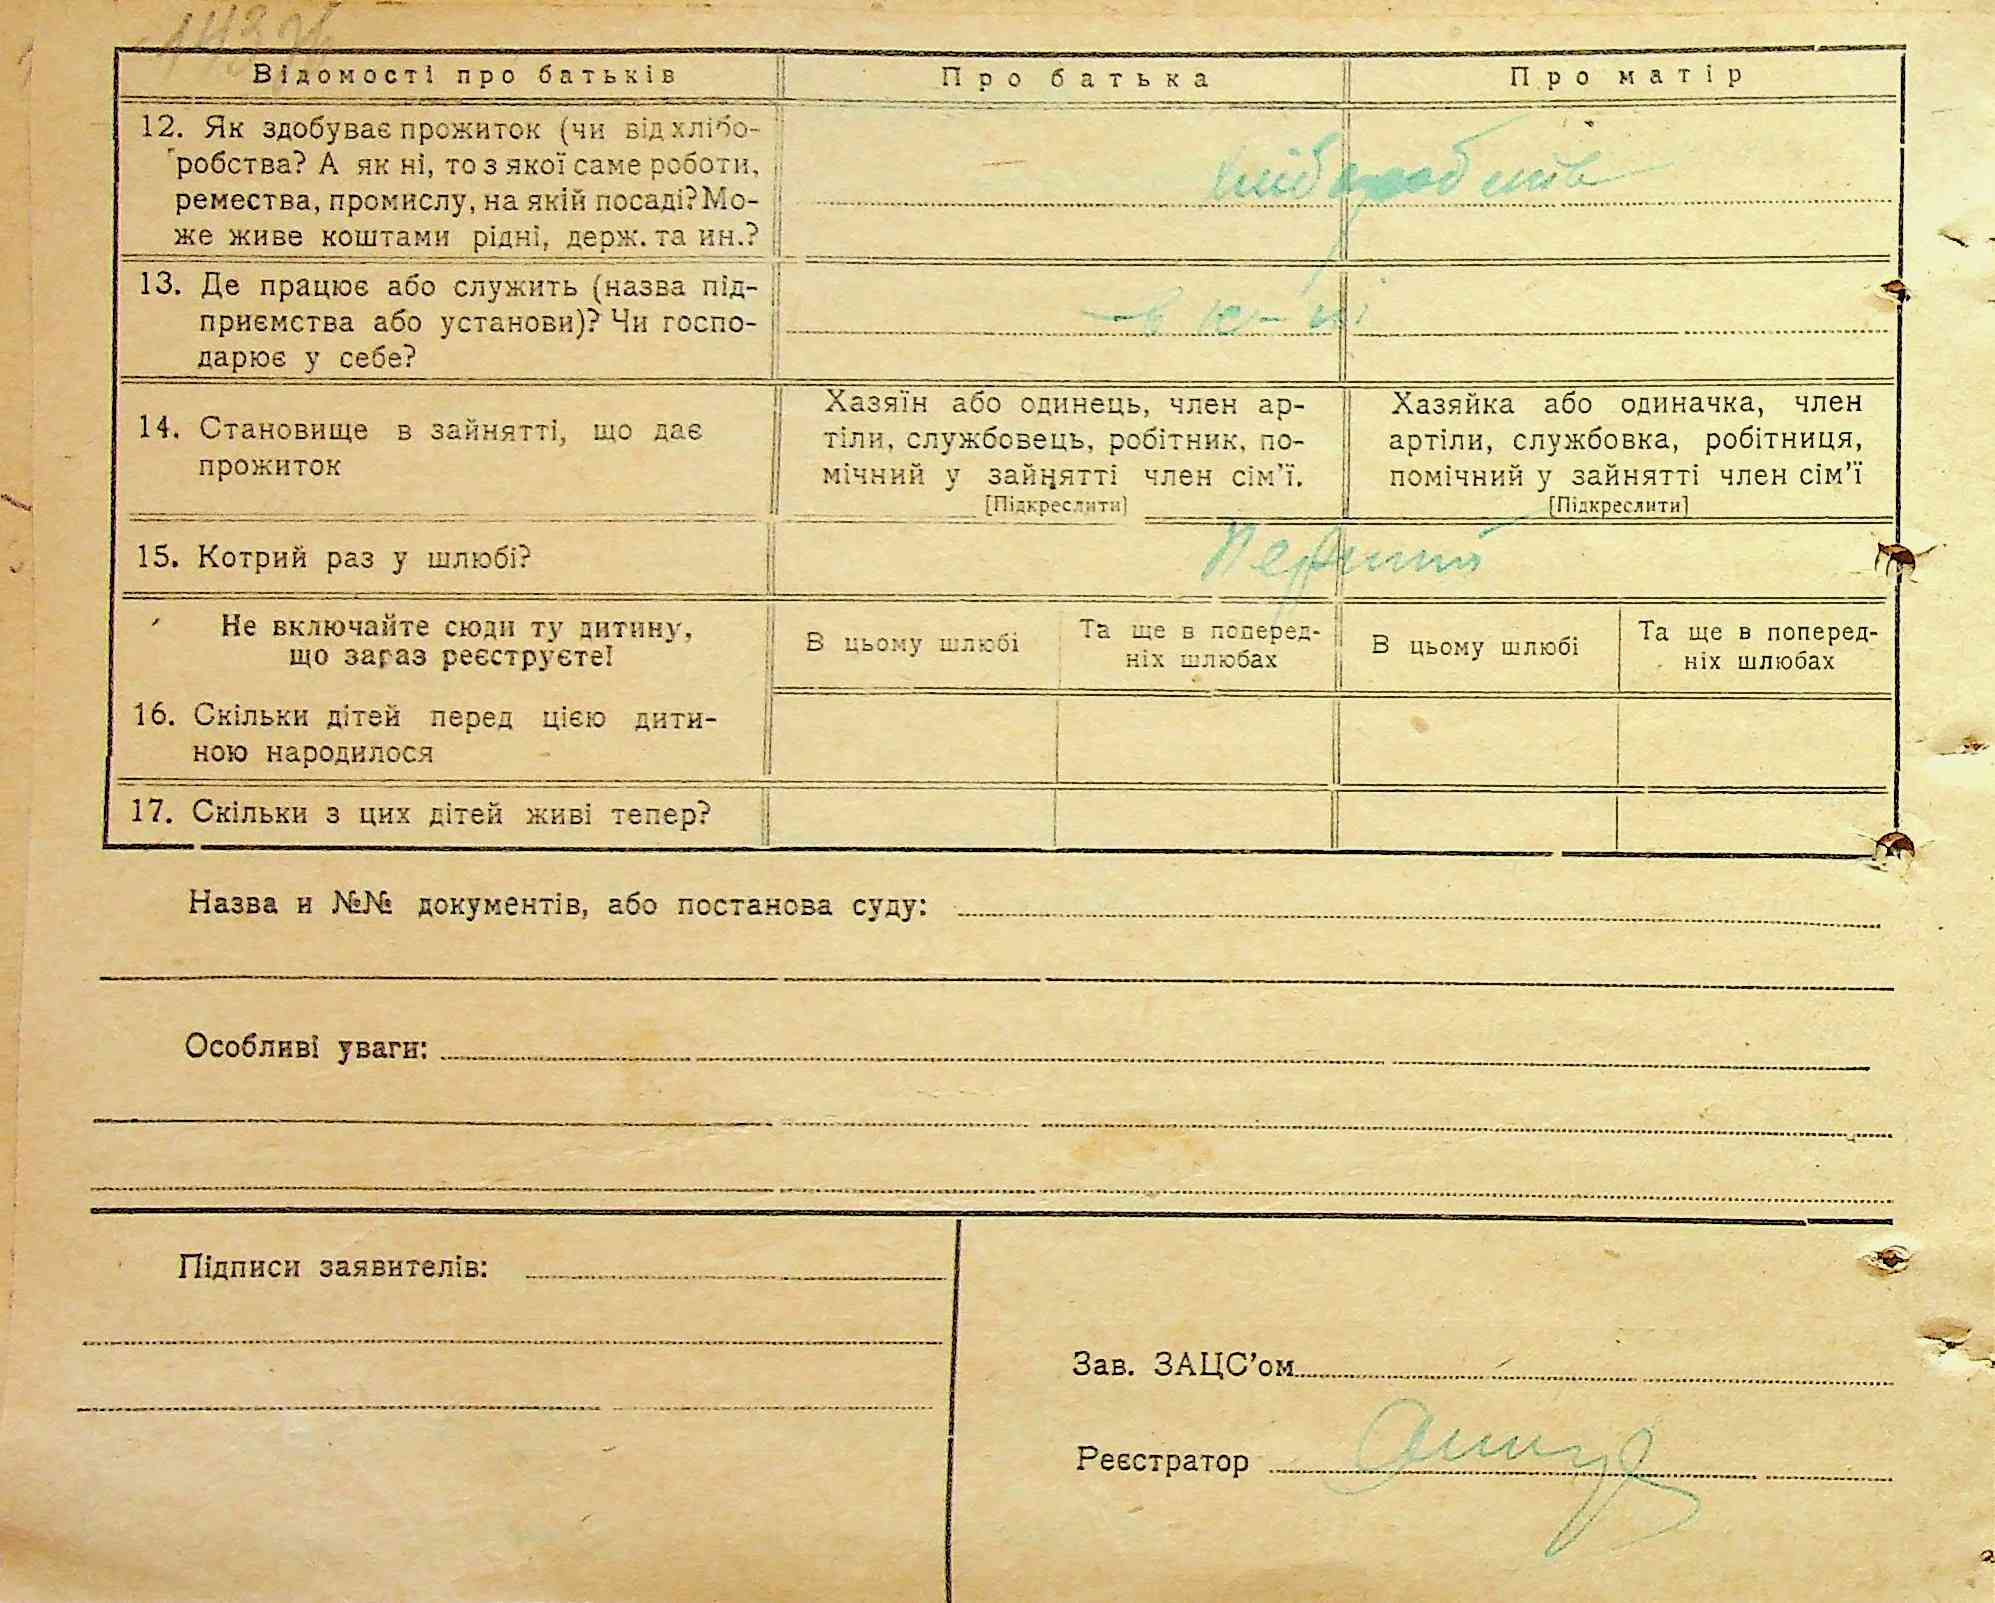 Відомості про батьків
Про батька
Про матір
12. Як здобуває прожиток (чи від хлібо-
робства? А як ні, то з якої саме роботи,
ремества, промислу, на якій посаді? Мо-
же живе коштами рідні, держ. та ин.?
13. Де працює або служить (назва під-
приємства або установи)? Чи госпо-
дарює у себе?
14. Становище в зайнятті, що дає
прожиток
Хазяїн або одинець, член ар-
тіли, службовець, робітник, по-
мічний у зайнятті член сім’ї.
[Підкреслити]
Хазяйка або одиначка, член
артіли, службовка, робітниця,
помічний у зайнятті член сім’ї
[Підкреслити]
15. Котрий раз у шлюбі?
Не включайте сюди ту дитину,
що зараз реєструєте!
В цьому шлюбі
Та ще в поперед-
ніх шлюбах
В цьому шлюбі
Та ще в поперед-
ніх шлюбах
16. Скільки дітей перед цією дити-
ною народилося
17. Скільки з цих дітей живі тепер?
Назва и №№ документів, або постанова суду:
Особливі уваги:
Підписи заявителів:
Зав. ЗАЦС’ом
Реєстратор